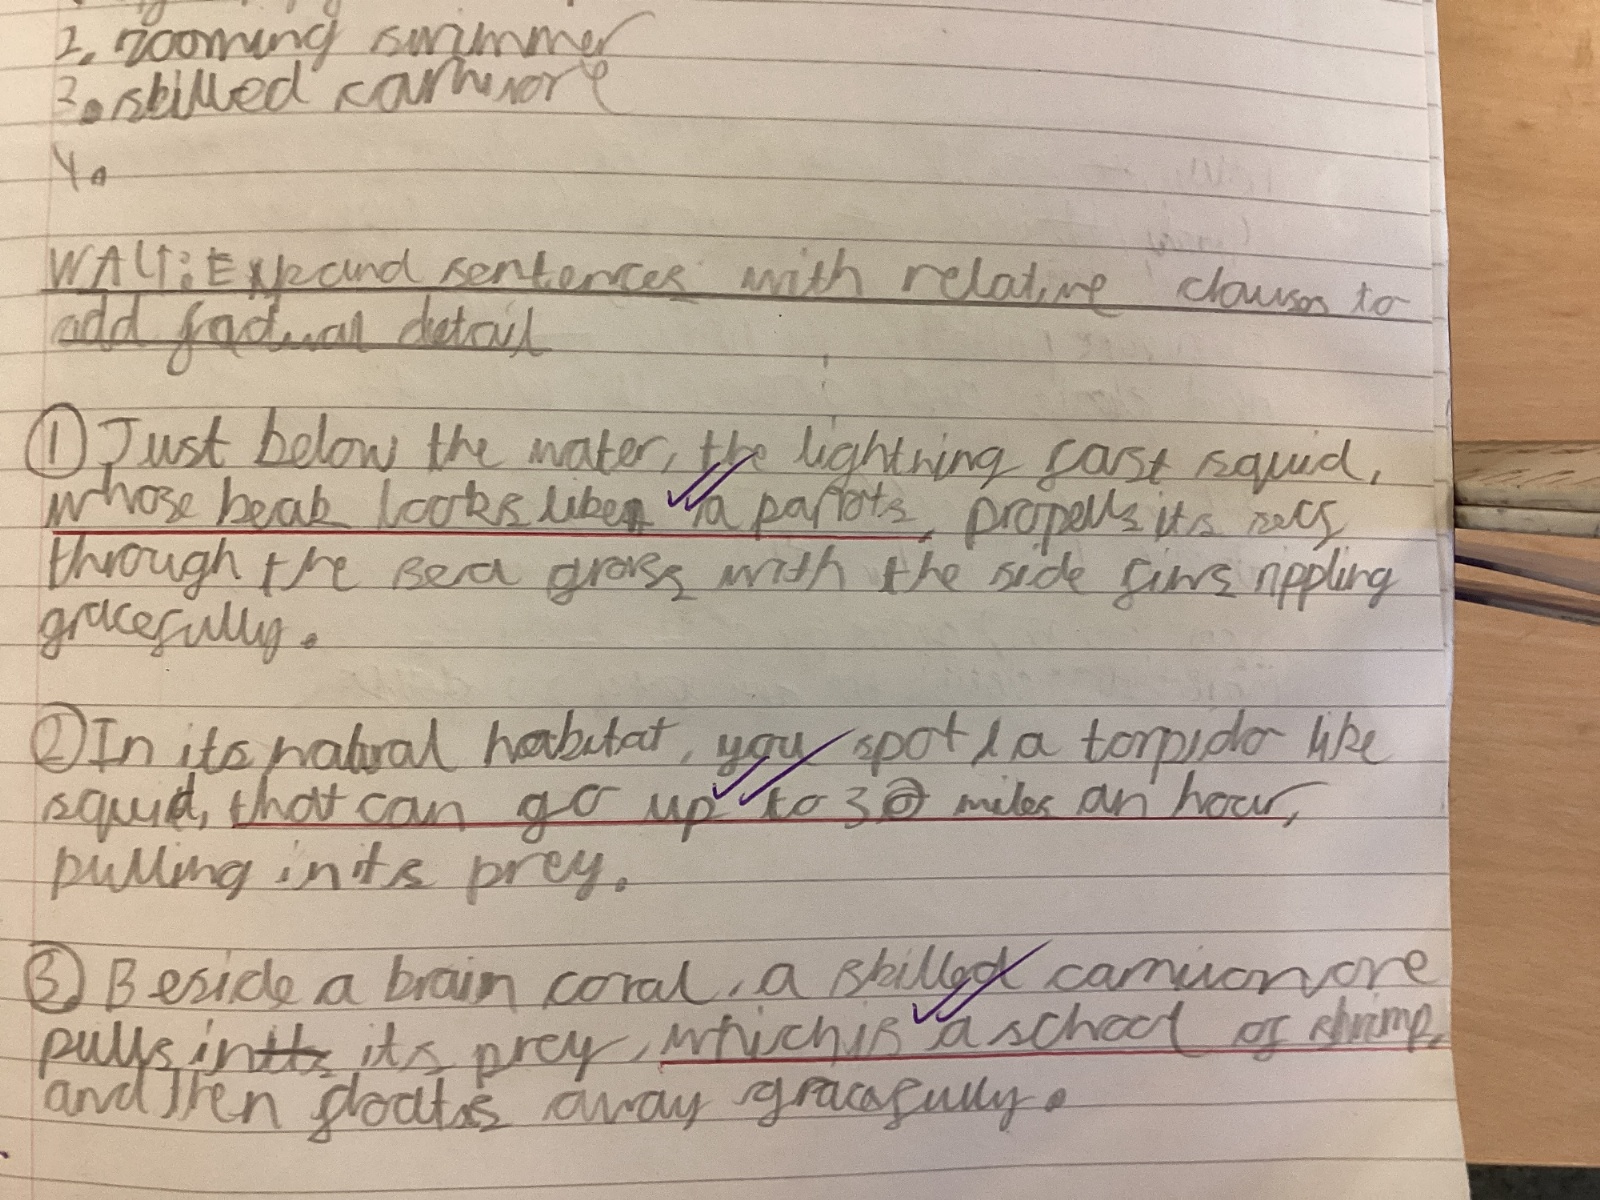 2. zooming swimmer
3. skilled carnivore
4.
WALT: Expand sentences with relative clauses to
add factual detail
① Just below the water, the lightning fast squid,
whose beak looks like a parrots, propells its
through the sea grass with the side fins rippling
gracefully.
② In its natural habitat, you spot a torpido like
squid, that can go up to 30 miles an hour,
pulling in its prey.
③ Beside a brain coral, a skilled carnuonvore
pulls in its its prey, which is a school of shrimp,
and then floats away gracefully.